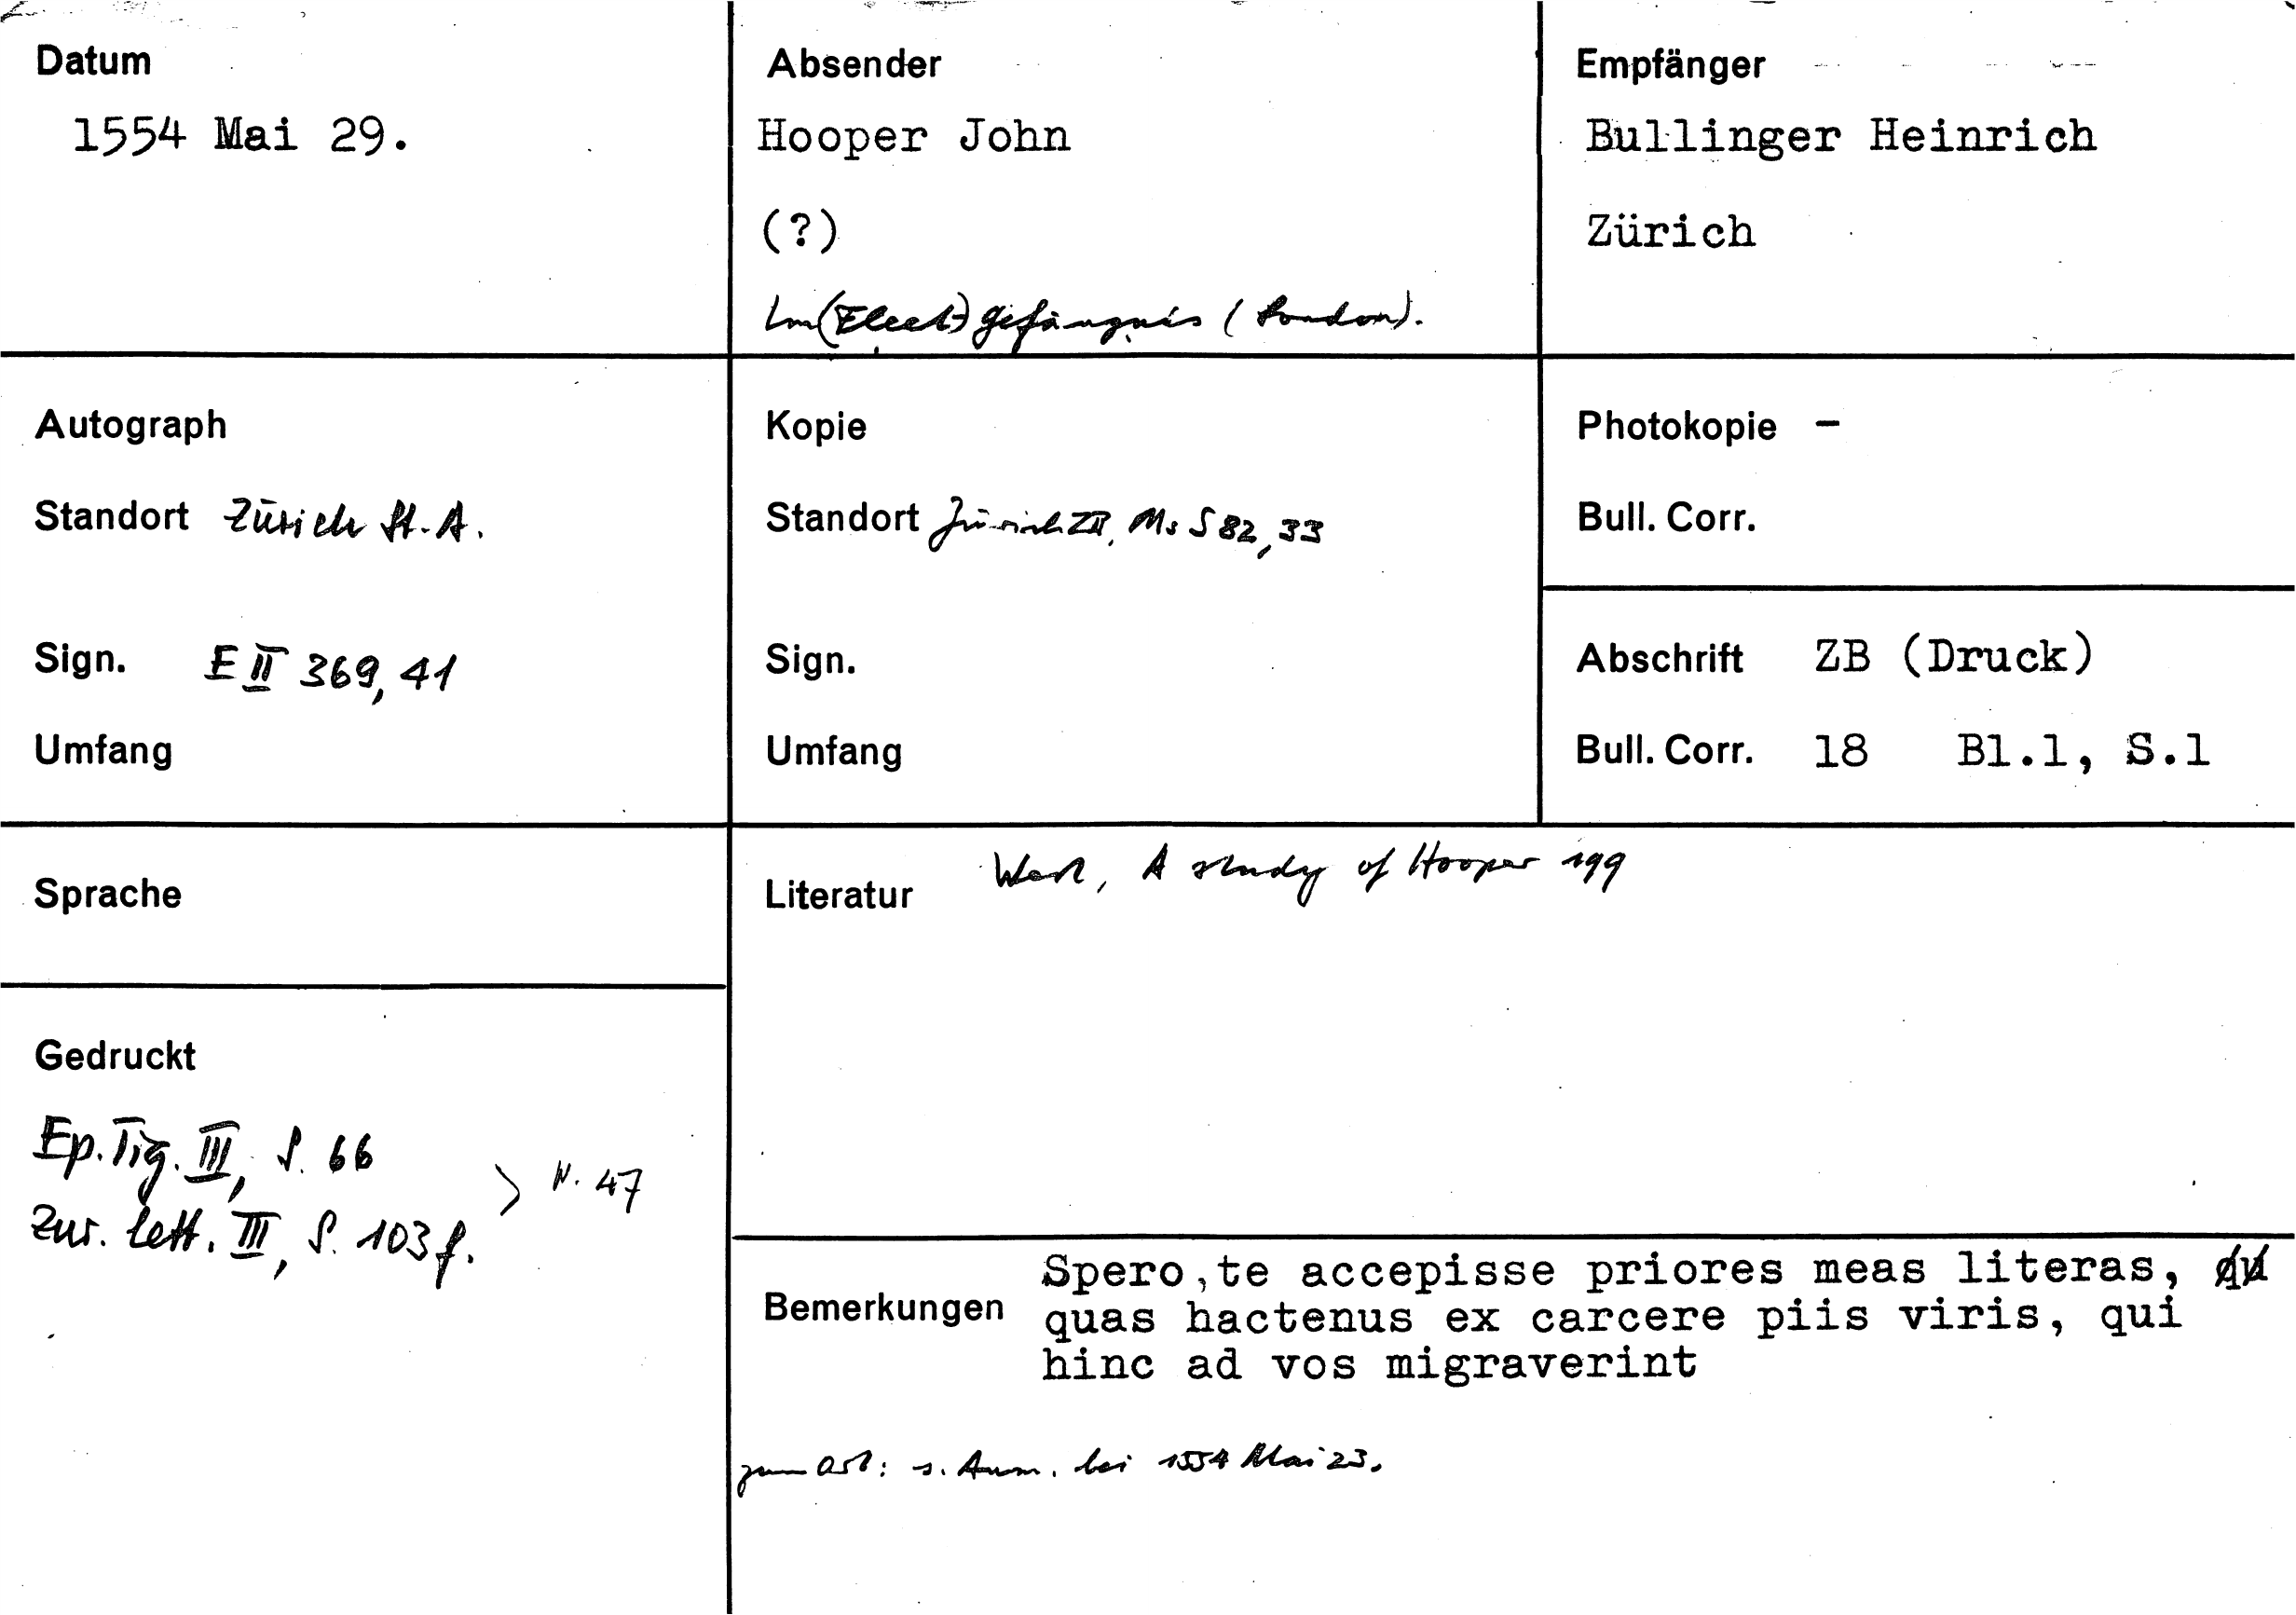 Datum
1554 Mai 29.
Absender
Hooper John
(?)
Im (Fleet-) gefängnis (London).
Empfänger
Bullinger Heinrich
Zürich
Autograph
Standort Zürich St.A.
Sign. E II 369, 41
Umfang
Kopie
Standort Zürich ZB, Ms S 82, 33
Sign.
Umfang
Photokopie -
Bull. Corr.
Abschrift ZB (Druck)
Bull. Corr. 18 Bl.1, S.1
Sprache
Literatur West, A study of Hooper 199
Gedruckt
Ep. Tig. III, S. 66
Zur. lett. III, S. 103 f.
> N. 47
Bemerkungen
Spero, te accepisse priores meas literas,
quas hactenus ex carcere piis viris, qui
hinc ad vos migraverint
zum Ort: s. Anm. bei 1554 Mai 23.